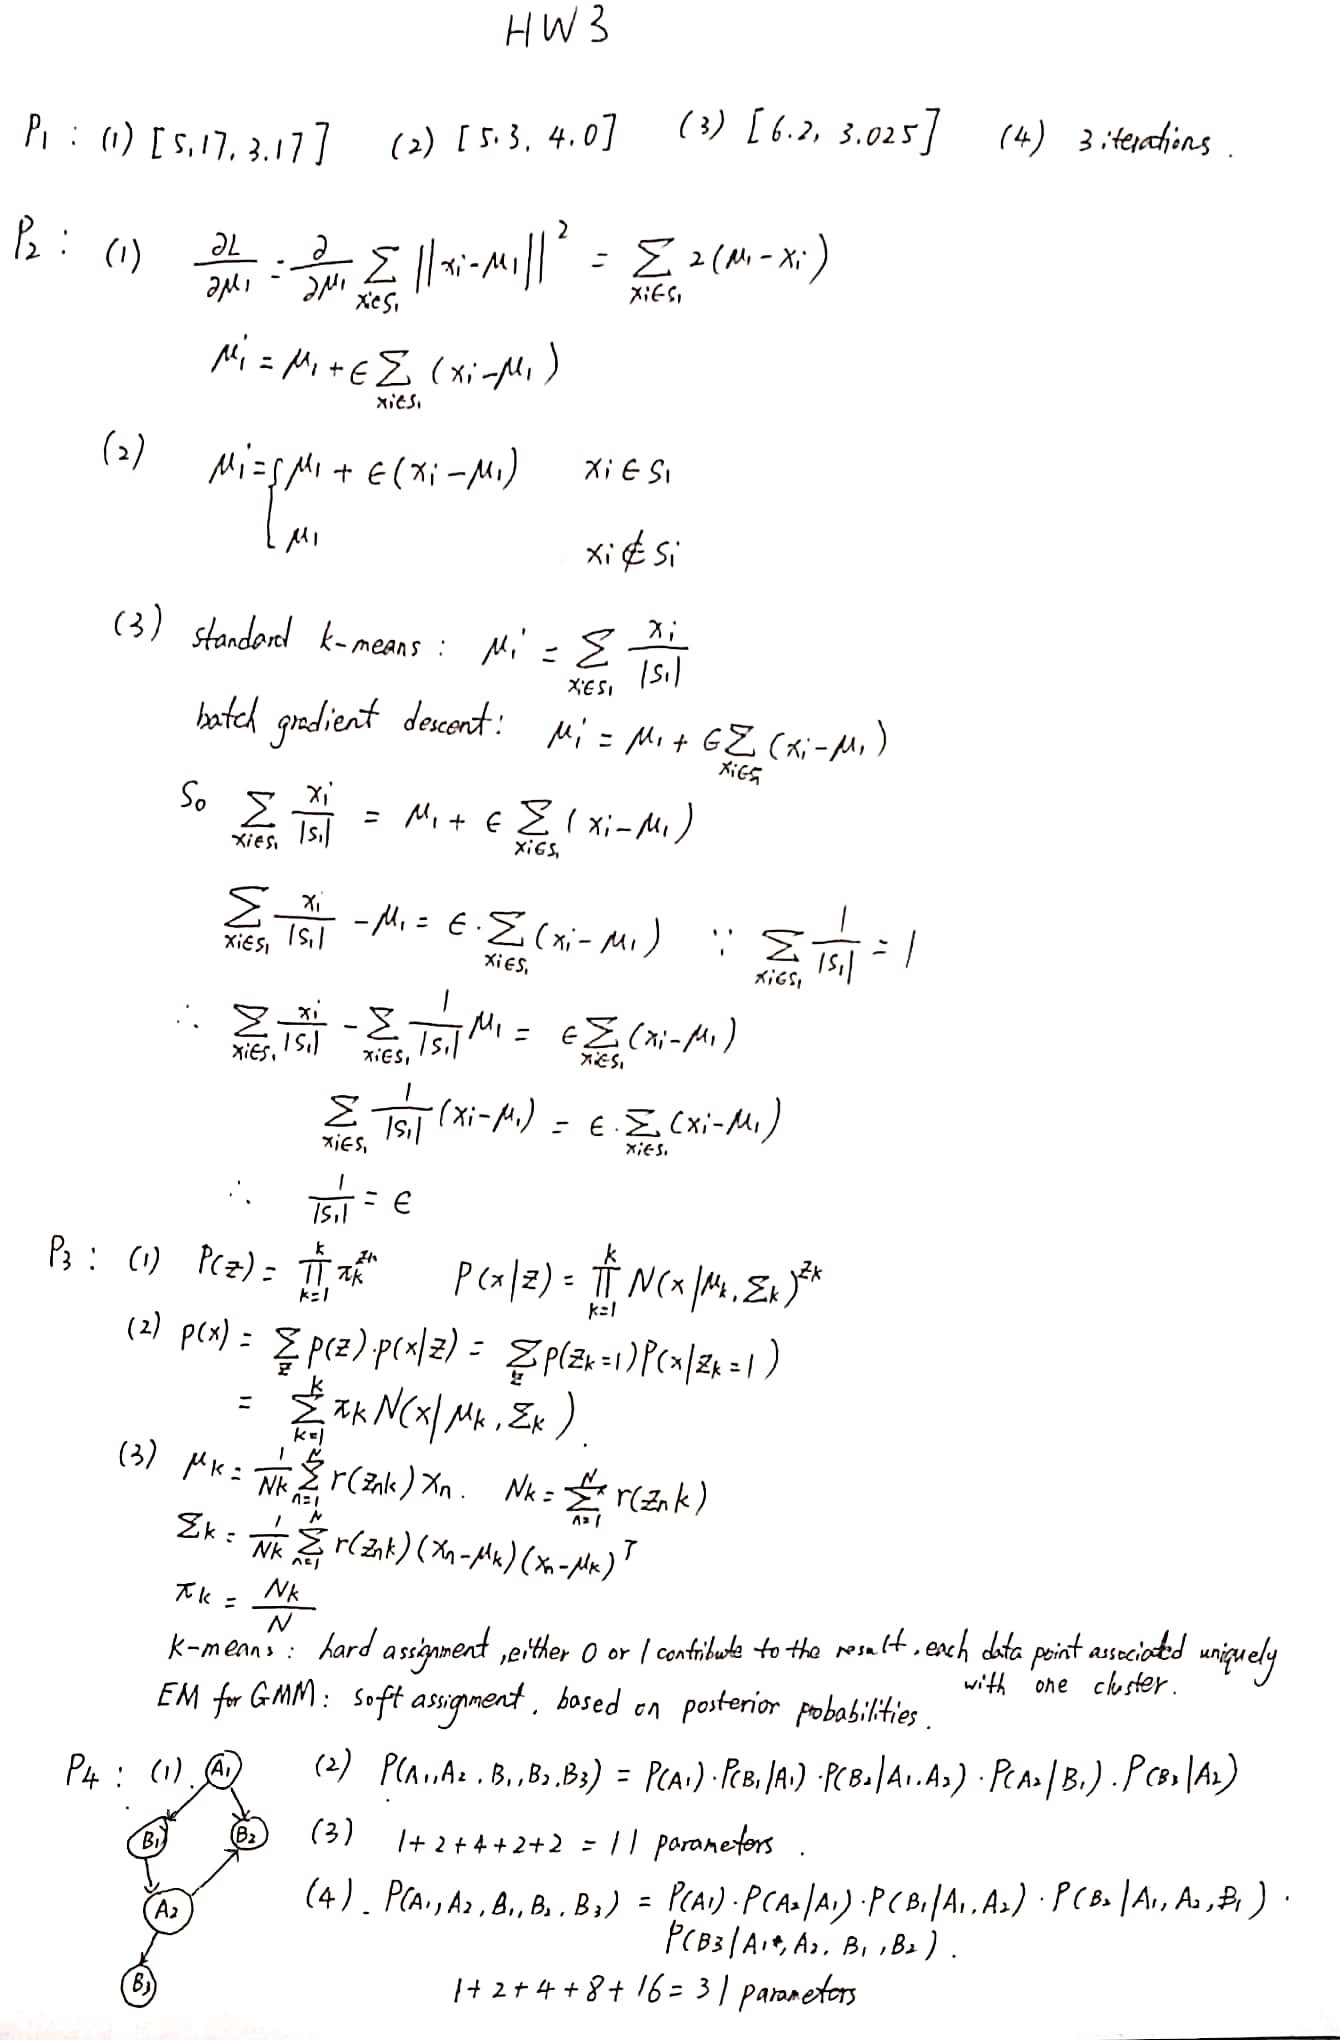 HW3
P1 : (1) [5.17, 3.17] (2) [5.3, 4.0] (3) [6.2, 3.025] (4) 3 iterations.
P2 : (1) ∂L/∂μ1 = ∂/∂μ1 Σ_{xi∈S1} ||xi-μ1||² = Σ_{xi∈S1} 2(μ1-xi)
μ1' = μ1 + ϵ Σ_{xi∈S1} (xi-μ1)
(2) μ1' = { μ1 + ϵ(xi-μ1) xi∈S1
μ1 xi∉Si
(3) standard k-means : μ1' = Σ_{xi∈S1} xi/|S1|
batch gradient descent : μ1' = μ1 + ϵ Σ_{xi∈S1} (xi-μ1)
So Σ_{xi∈S1} xi/|S1| = μ1 + ϵ Σ_{xi∈S1} (xi-μ1)
Σ_{xi∈S1} xi/|S1| - μ1 = ϵ · Σ_{xi∈S1} (xi-μ1) ∵ Σ_{xi∈S1} 1/|S1| = 1
∴ Σ_{xi∈S1} xi/|S1| - Σ_{xi∈S1} 1/|S1| μ1 = ϵ Σ_{xi∈S1} (xi-μ1)
Σ_{xi∈S1} 1/|S1| (xi-μ1) = ϵ · Σ_{xi∈S1} (xi-μ1)
∴ 1/|S1| = ϵ
P3 : (1) P(z) = Π_{k=1}^{k} πk^{zk} P(x|z) = Π_{k=1}^{k} N(x|μk, Σk)^{zk}
(2) p(x) = Σ_z p(z)·p(x|z) = Σ_z p(zk=1)P(x|zk=1)
= Σ_{k=1}^{k} πk N(x|μk, Σk).
(3) μk = 1/Nk Σ_{n=1}^{N} r(znk) xn. Nk = Σ_{n=1}^{N} r(znk)
Σk = 1/Nk Σ_{n=1}^{N} r(znk)(xn-μk)(xn-μk)^T
πk = Nk/N
k-means : hard assignment, either 0 or 1 contribute to the result, each data point associated uniquely
with one cluster.
EM for GMM : soft assignment, based on posterior probabilities.
P4 : (1) A1 (2) P(A1, A2, B1, B2, B3) = P(A1)·P(B1|A1)·P(B2|A1, A2)·P(A2|B1)·P(B3|A2)
B1 B2 (3) 1+2+4+2+2 = 11 parameters.
A2 (4). P(A1, A2, B1, B2, B3) = P(A1)·P(A2|A1)·P(B1|A1, A2)·P(B2|A1, A2, B1)·
P(B3|A1, A2, B1, B2).
B3 1+2+4+8+16 = 31 parameters